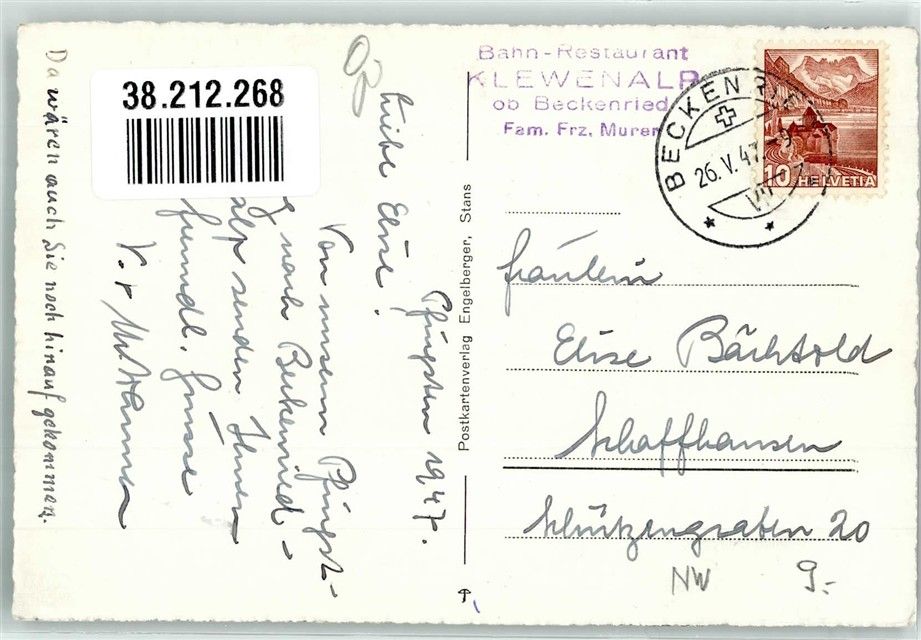 Bahn-Restaurant
KLEWENALP
ob Beckenried
Fam. Frz. Murer
BECKENRIED
26.V.47.-9
VII
10 HELVETIA
38.212.268
Pfingsten 1947.
Liebe Elise!
Von unserm Pfingst-
nach Beckenried-
alp senden Ihnen
freundl. Grüsse
Da wären auch Sie noch hinauf gekommen.
Postkartenverlag Engelberger, Stans
Fräulein
Elise Bächtold
Schaffhausen
Schützengraben 20
NW 9.-